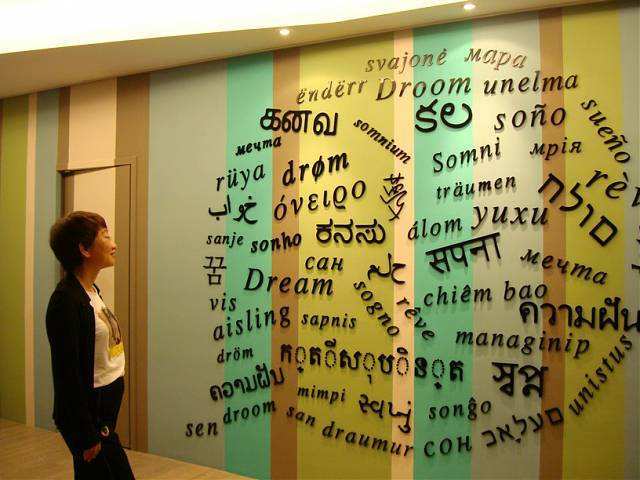 svajonė мара
ëndërr Droom unelma
கனவு somnium కల soño sueño
мечта Somni мрія
rüya drøm träumen
خواب όνειρο álom yuxu חלום
sanje sonho ಕನಸು सपना мечта
꿈 сан
Dream sogno rêve chiêm bao
vis ความฝัน
aisling sapnis managinip
dröm
ຄວາມຝັນ mimpi songô unistus
sen droom san draumur сон